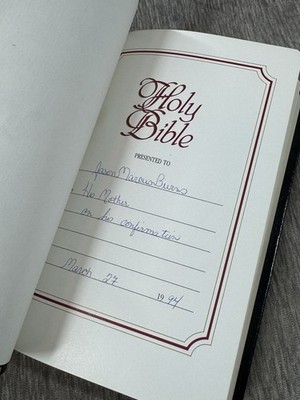 Holy
Bible
PRESENTED TO
Jason Marcus Burns
His Mother
on his confirmation
March 27 1994